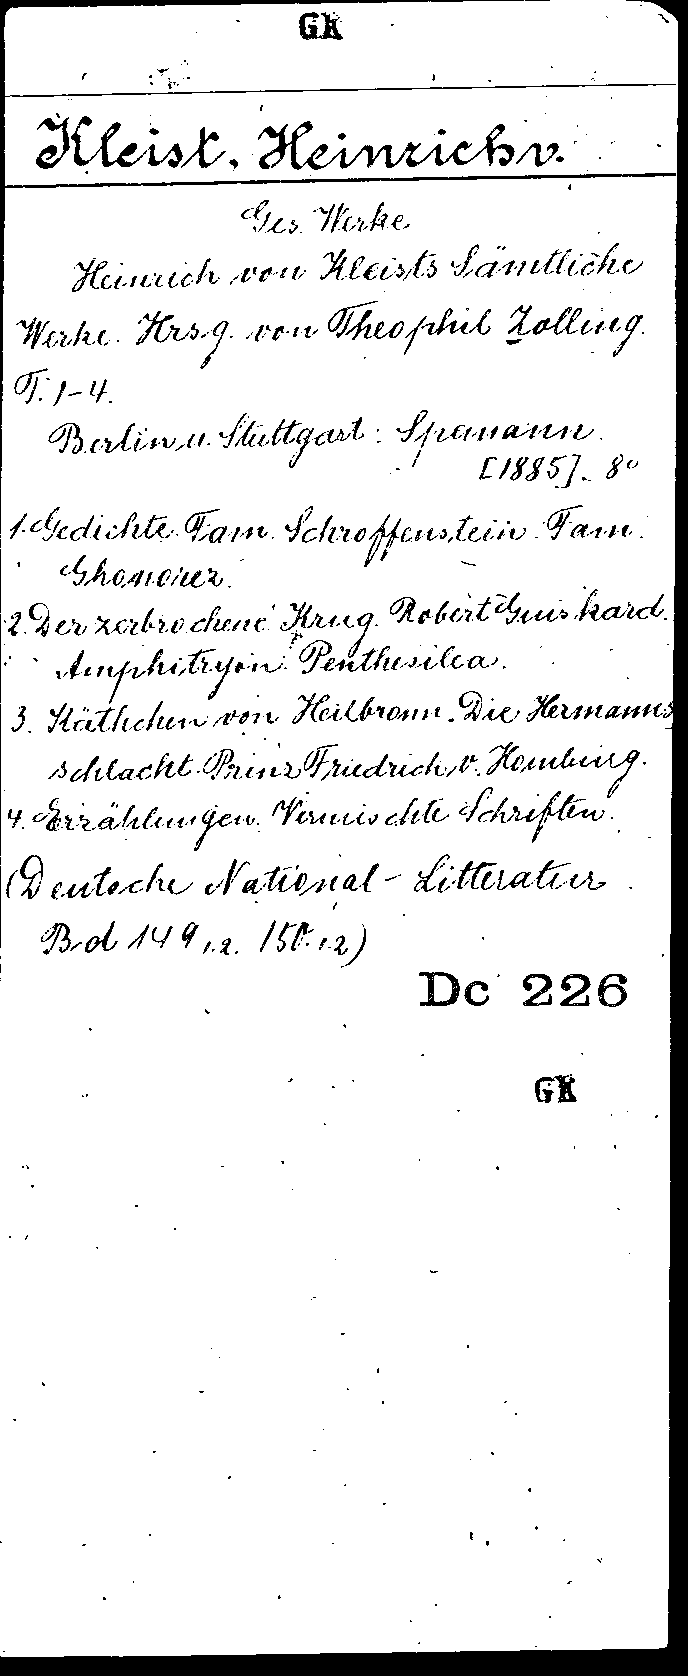 GK
Kleist, Heinrich v.
Ges. Werke
Heinrich von Kleists Sämtliche
Werke. Hrsg. von Theophil Zolling.
T. 1-4.
Berlin u. Stuttgart: Spemann.
[1885]. 8°
1. Gedichte. Fam. Schroffenstein. Fam.
Ghonorez.
2. Der zerbrochene Krug. Robert Guiskard.
Amphitryon. Penthesilea.
3. Käthchen von Heilbronn. Die Hermanns
schlacht. Prinz Friedrich v. Homburg.
4. Erzählungen. Vermischte Schriften.
(Deutsche National-Litteratur.
Bd 149 1.2. 150. 1.2)
Dc 226
GK